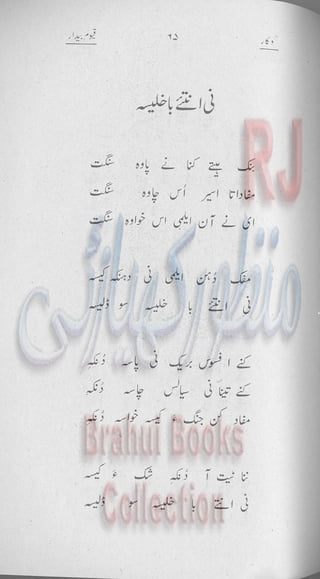 قیوم بیدار ۶۵ گدکار
نی انتئے با خلیسہ
بنک ہیتے کنا نے پاوہ سنگت
مفاداتا اسیر اُس چاوہ سنگت
ای نے آن ایلمی اس خواوہ سنگت
مفک دُہن ایلمی نی دہنکہ کیسہ
نی انتئے با خلیسہ سو ڈلیسہ
کنے افسوس بریک نی پاسہ دُنکہ
کنے تینا نی سیالس چاسہ دُنکہ
مفاد کن جنگ ءَ کیسہ خواسہ دُنکہ
ننا نیت آ دُنکہ شک ءَ کیسہ
نی انتئے با خلیسہ سو ڈلیسہ
RJ
منظور کھیازئی
Brahui Books
Collection